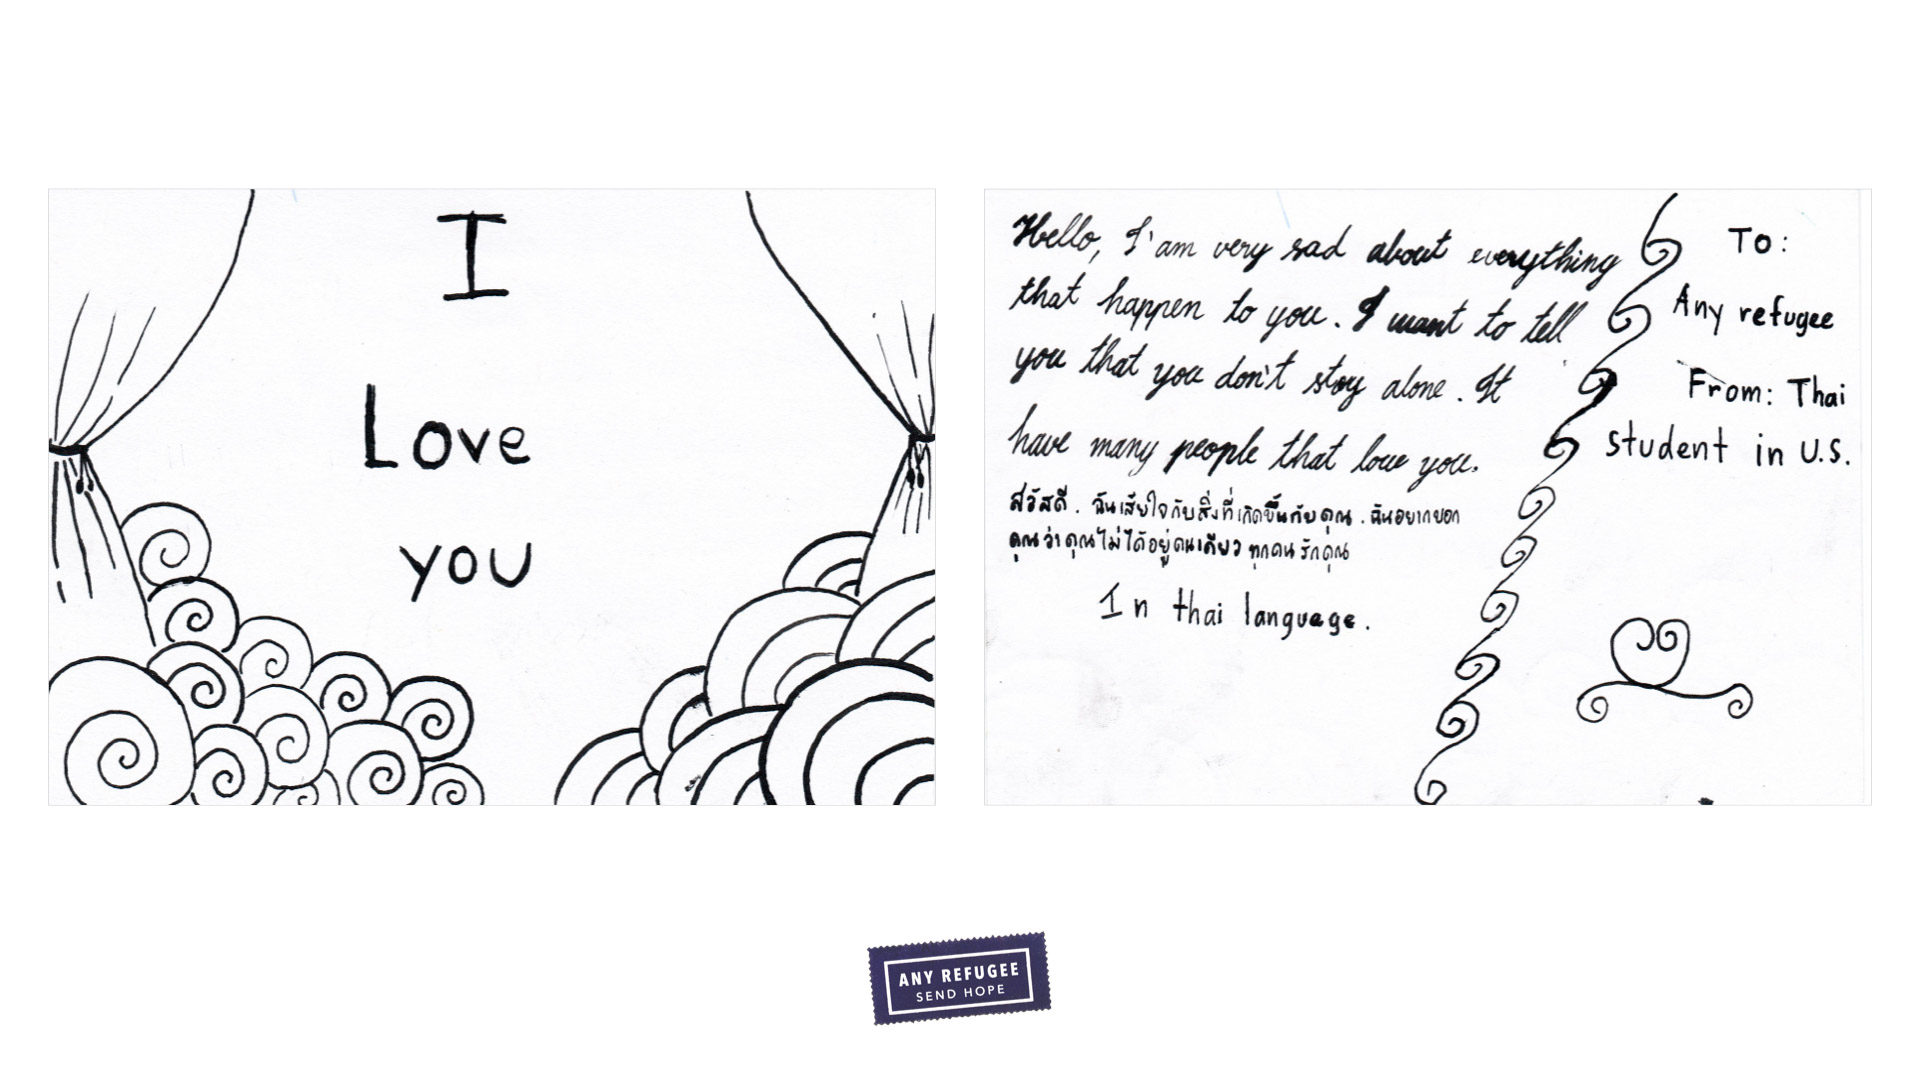 I
Love
you
Hello, I'am very sad about everything
that happen to you. I want to tell
you that you don't stay alone. It
have many people that love you.
สวัสดี. ฉันเสียใจกับสิ่งที่เกิดขึ้นกับคุณ. ฉันอยากบอก
คุณว่าคุณไม่ได้อยู่คนเดียว ทุกคนรักคุณ
In thai language.
To:
Any refugee
From: Thai
student in U.S.
ANY REFUGEE
SEND HOPE